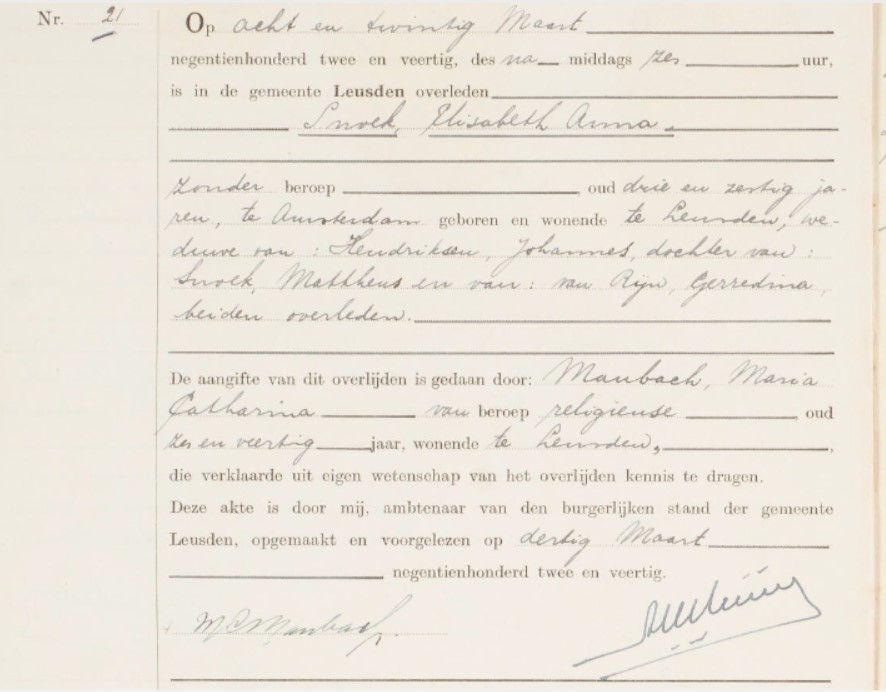 Nr. 21
Op acht en twintig Maart
negentienhonderd twee en veertig, des na middags zes uur,
is in de gemeente Leusden overleden
Snoek, Elisabeth Anna.
zonder beroep , oud drie en zestig ja-
ren, te Amsterdam geboren en wonende te Leusden, we-
duwe van : Hendriksen, Johannes, dochter van :
Snoek, Mattheus en van : van Rijn, Gerredina,
beiden overleden.
De aangifte van dit overlijden is gedaan door: Maubach, Maria
Catharina van beroep religieuse , oud
zes en veertig jaar, wonende te Leusden,
die verklaarde uit eigen wetenschap van het overlijden kennis te dragen.
Deze akte is door mij, ambtenaar van den burgerlijken stand der gemeente
Leusden, opgemaakt en voorgelezen op dertig Maart
negentienhonderd twee en veertig.
M C Maubach.